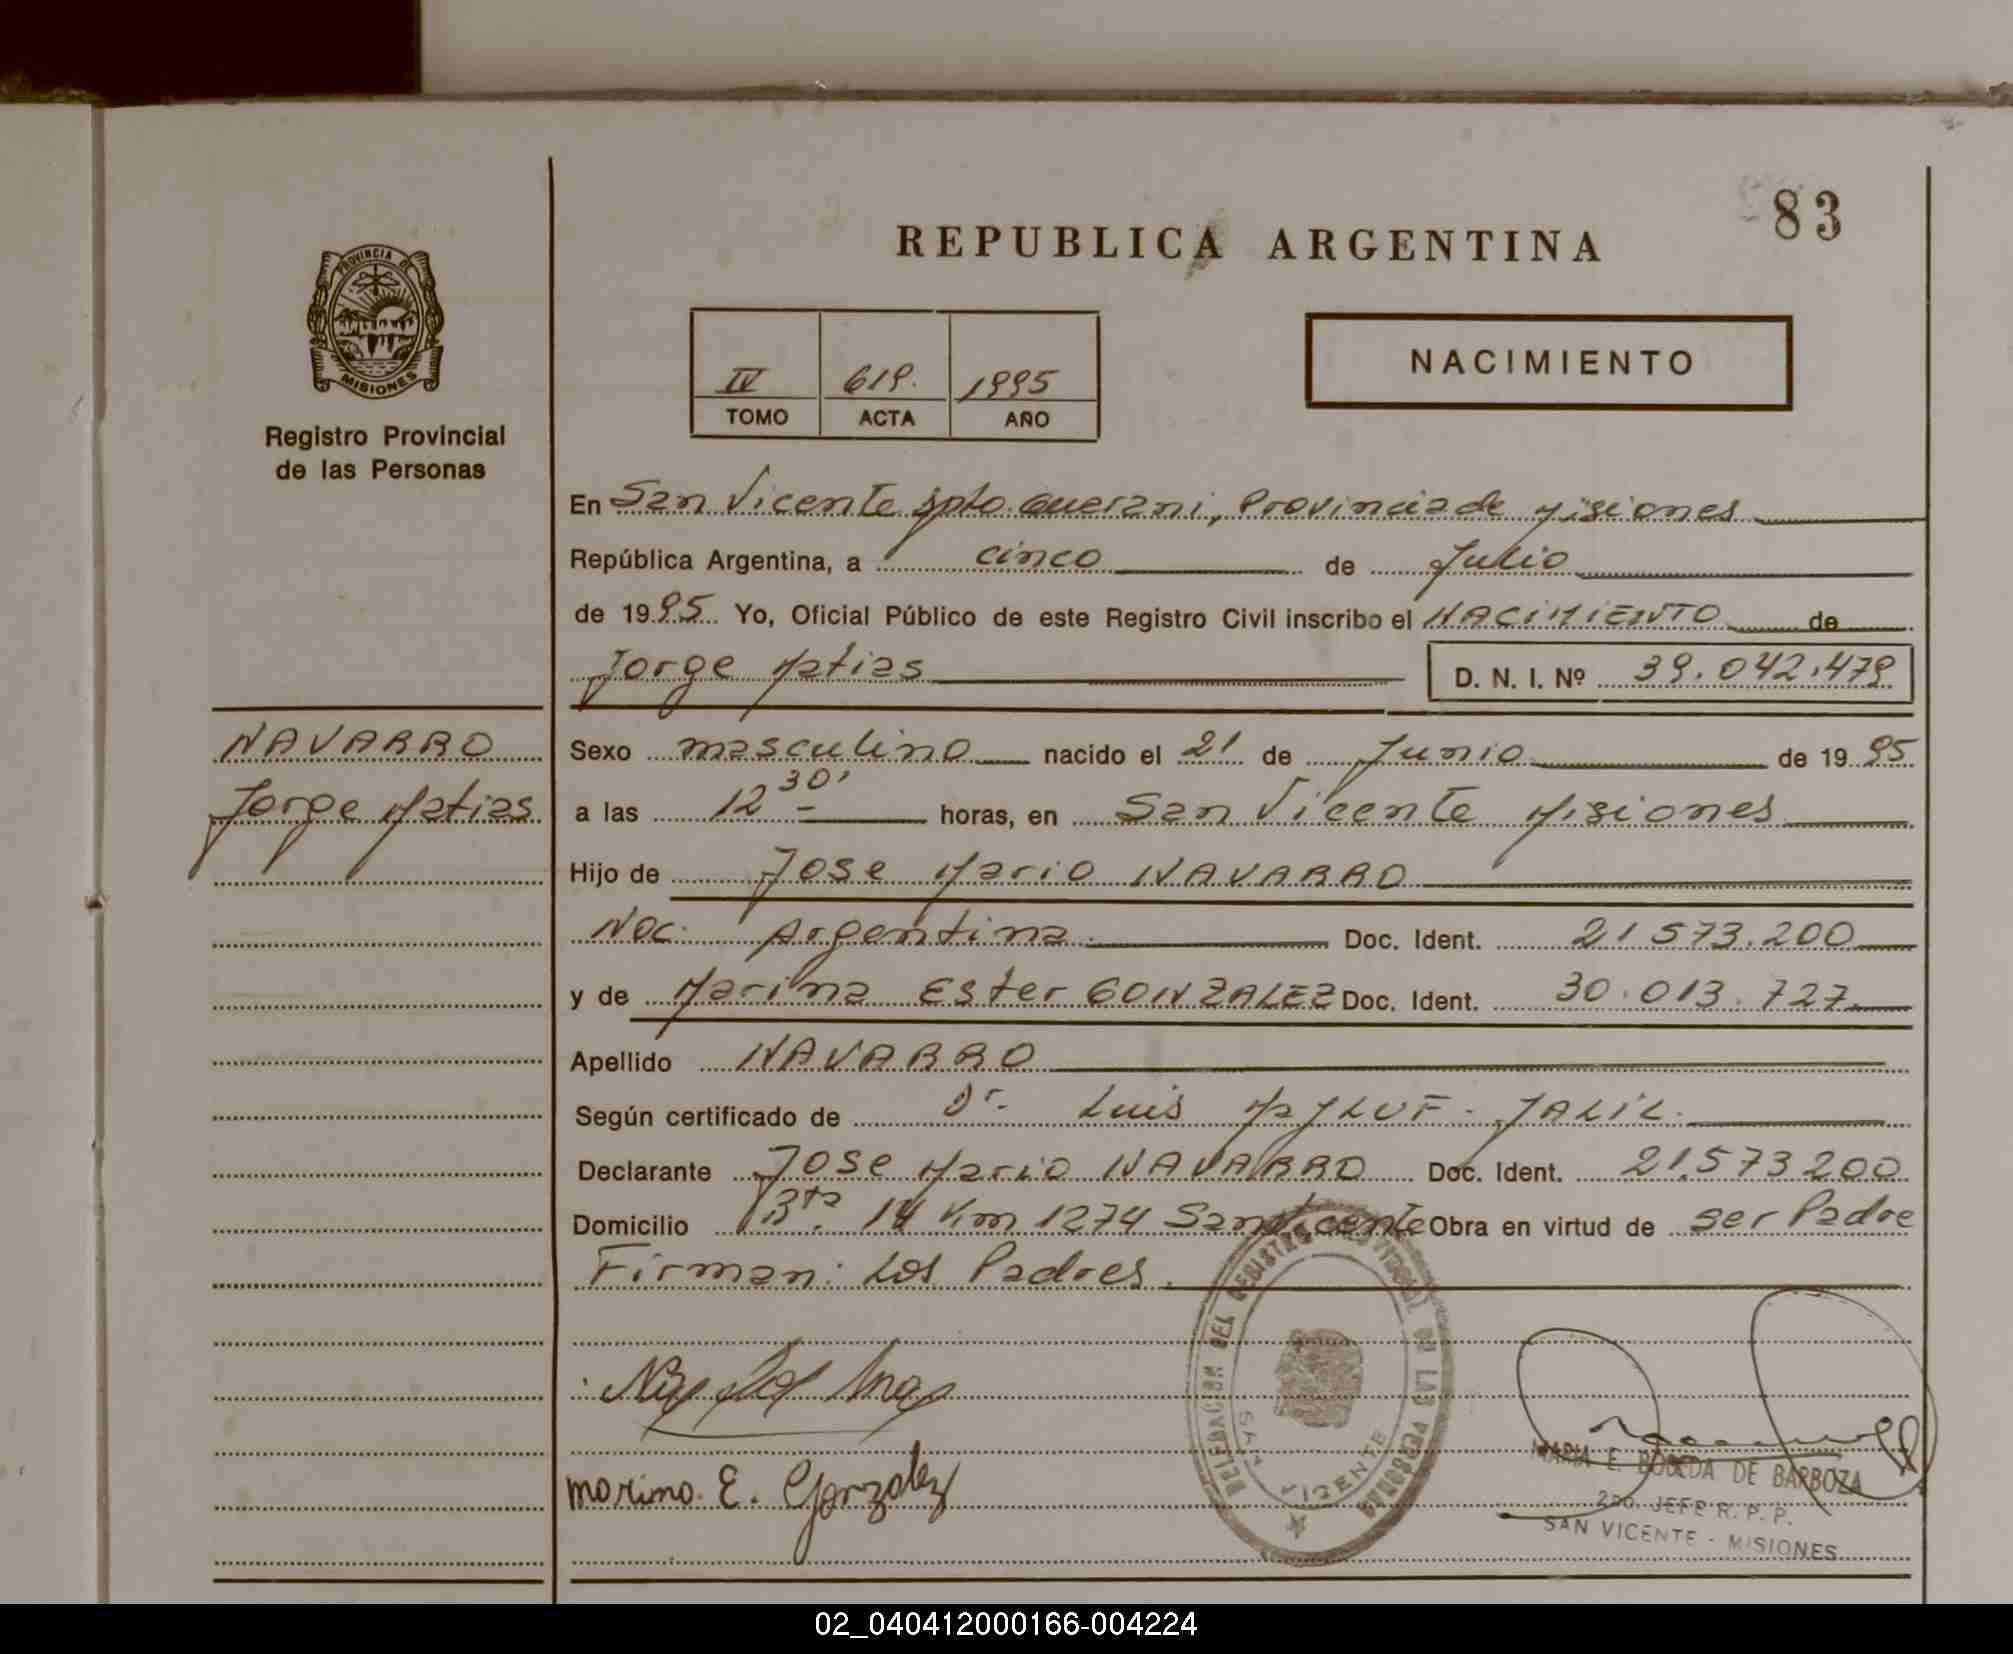 83
REPUBLICA ARGENTINA
PROVINCIA DE
MISIONES
Registro Provincial
de las Personas
IV 619. 1995
TOMO ACTA AÑO
NACIMIENTO
En San Vicente Dpto. Guarani, Provincia de Misiones
República Argentina, a cinco de Julio
de 1995 Yo, Oficial Público de este Registro Civil inscribo el NACIMIENTO de
Jorge Matias D. N. I. Nº 39.042.479
NAVARRO
Jorge Matias
Sexo masculino nacido el 21 de Junio de 1995
a las 12 30' horas, en San Vicente Misiones
Hijo de Jose Mario NAVARRO
Nac. Argentina. Doc. Ident. 21 573.200
y de Marina Ester GONZALEZ Doc. Ident. 30.013.727.
Apellido NAVARRO
Según certificado de Dr. Luis JALIL.
Declarante Jose Mario NAVARRO Doc. Ident. 21.573200
Domicilio Rta. 14 Km 1274 San Vicente Obra en virtud de ser Padre
Firman: Los Padres.
DELEGACION DEL REGISTRO PROVINCIAL DE LAS PERSONAS
SAN VICENTE
marina. E. Gonzalez
MARIA E. BOBEDA DE BARBOZA
2do. JEFE R. P. P.
SAN VICENTE - MISIONES
02_040412000166-004224